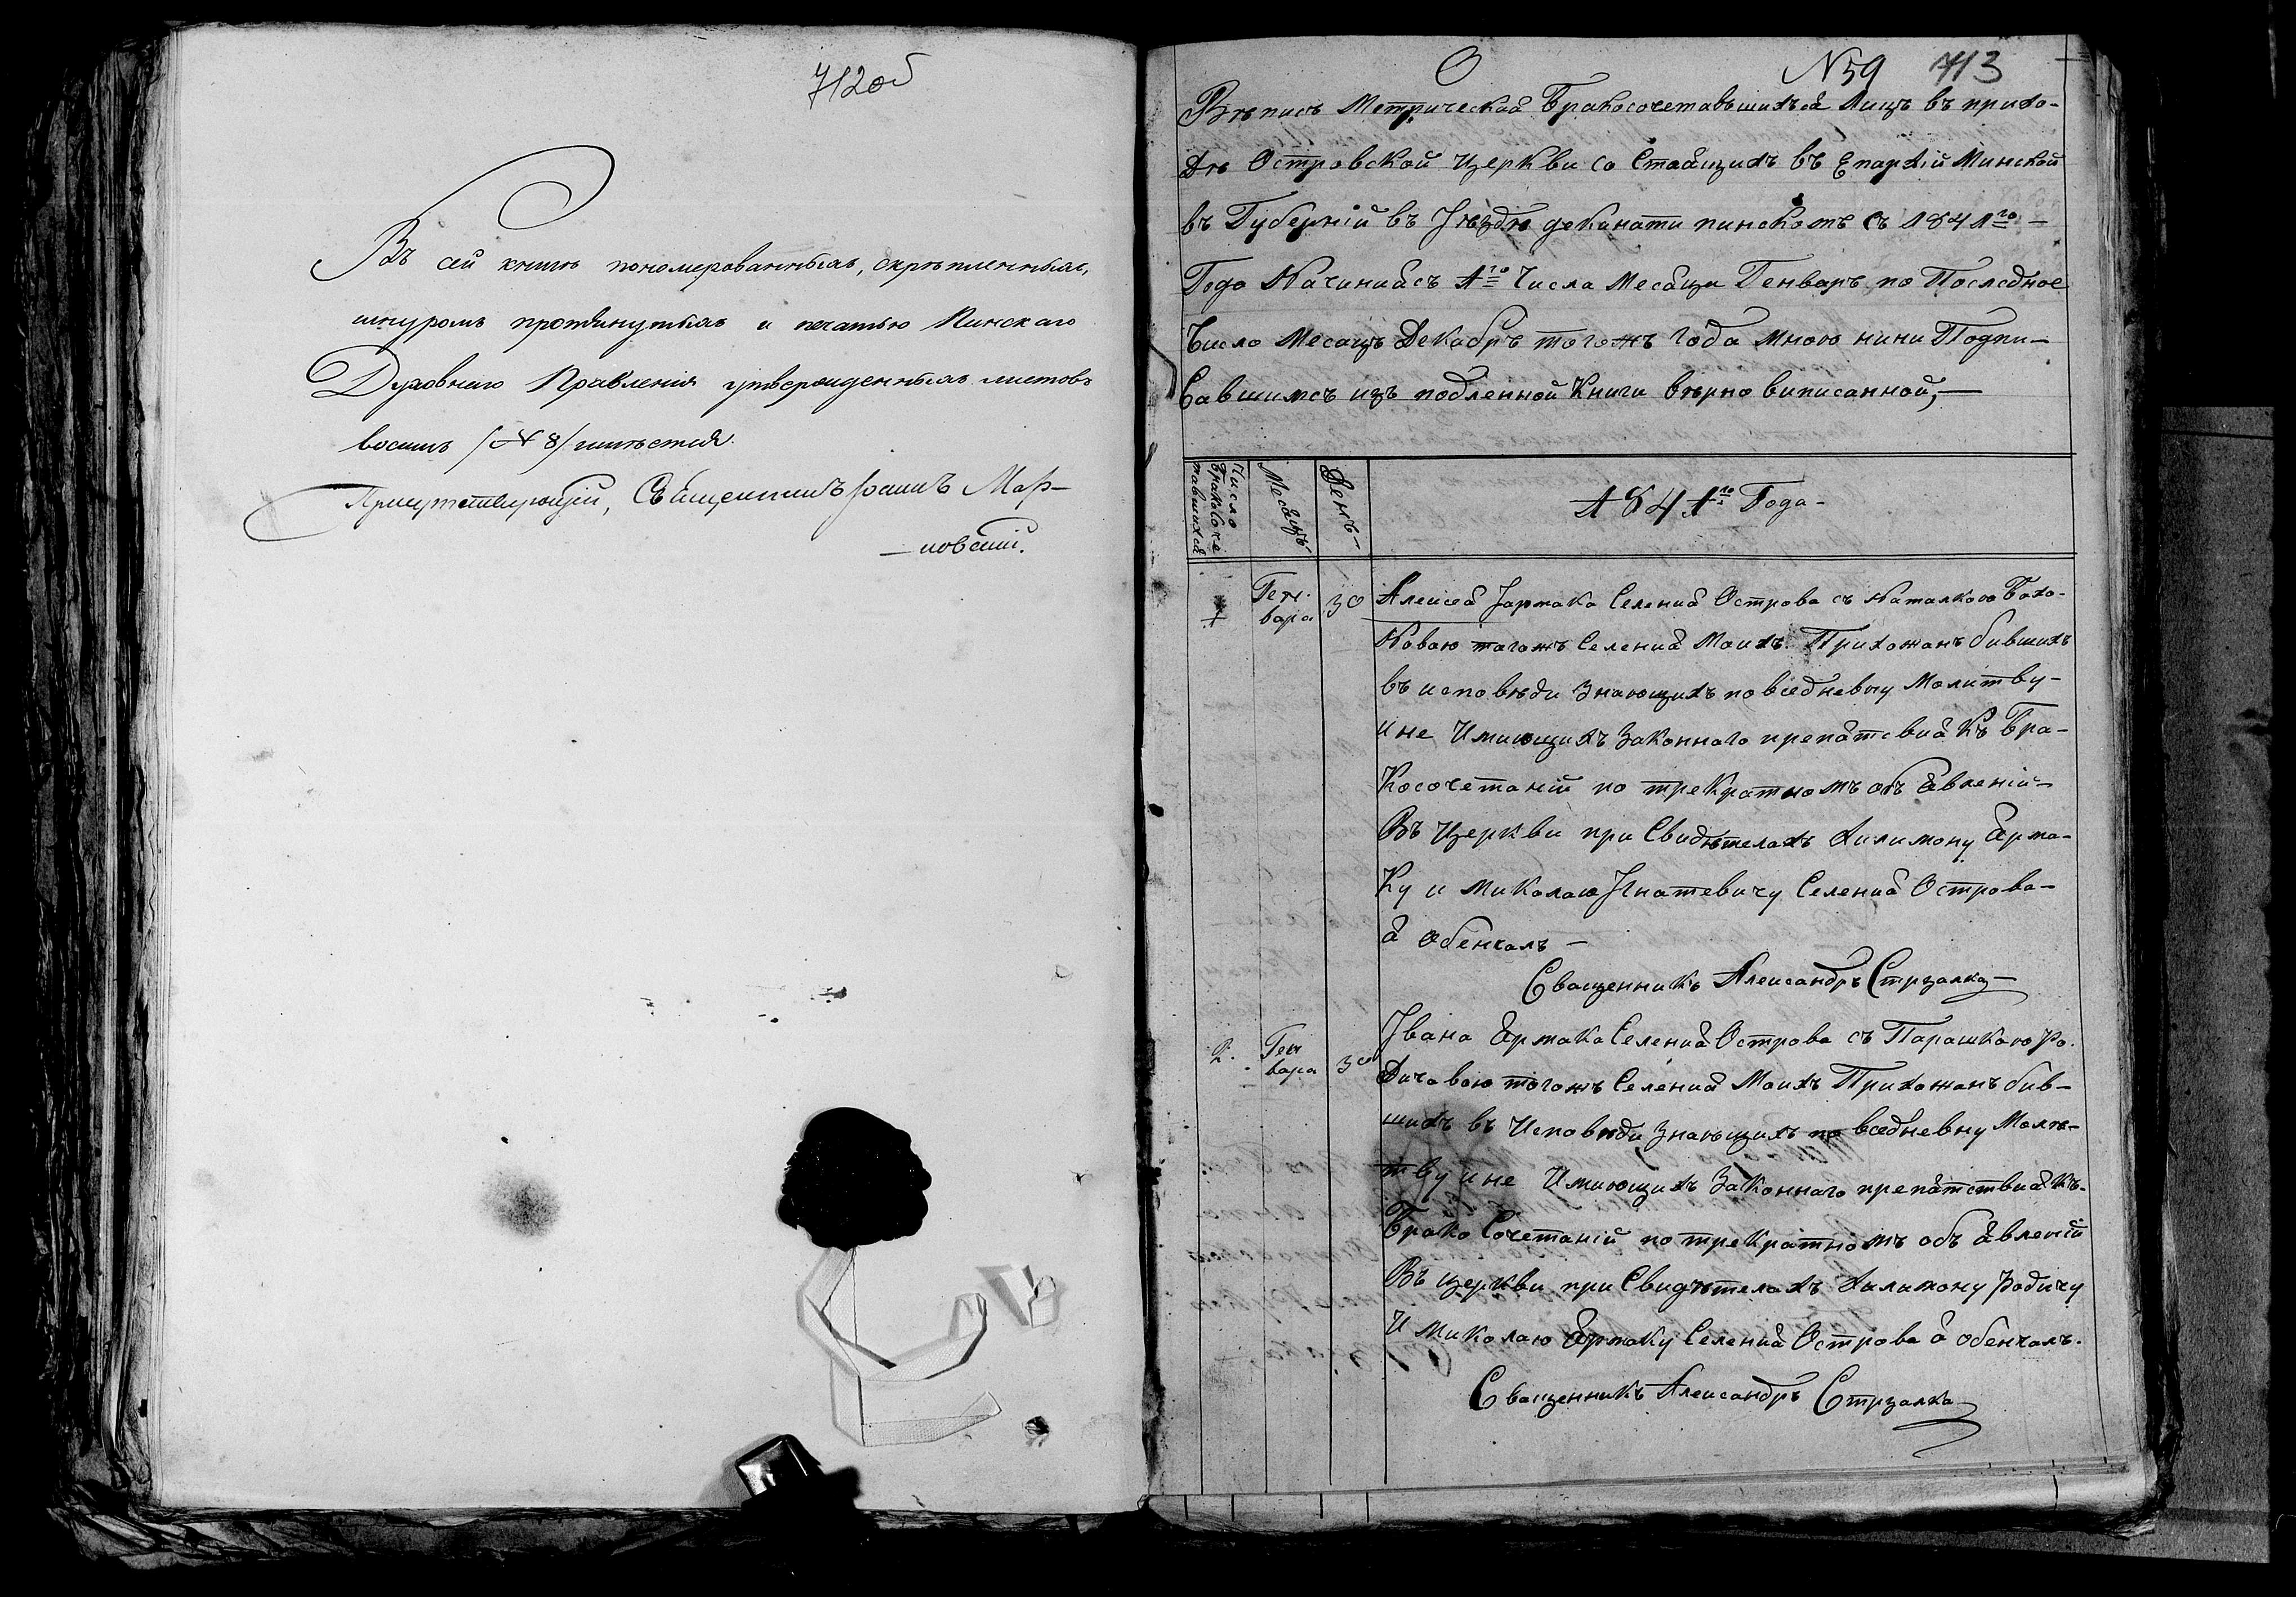 712об
Въ сей книге пономерованныхъ, скрепленныхъ,
шнуромъ протянутыхъ и печатью Пинскаго
Духовнаго Правления утвержденныхъ листовъ
восемь /№ 8/
Присутствующій, Священникъ Мар-
-новскій.
N 59 713
Метрической Бракосочетавшихъся Лицъ въ прихо-
Де Островской Церкви со Стаящихъ въ Епархіи Минской
въ Губерній въ Уѣзде деканати пинскомъ съ 1841го
Года Начинаясъ 1го Числа Месяца Генваръ по Последное
Число Месяцъ Декабръ тогожъ Года мною нини Подпи-
Савшимсъ изъ подленной Книги вѣрно виписанной,
Число бракосочетавшихся
Месяцъ
День
1841го Года
1 Генвара 30 Алексея Јармака Селения Острова съ Наталкою Бахо-
Новою тогожъ Селения Моихъ Прихожанъ бившихъ
въ исповѣди Знающихъ повседневну Молитву
и не Имиющихъ Законного препятсвия Къ Бра-
Косочетаній по треКратномъ объ Явленій
Въ Церкви при Свидѣтелахъ Хилимону Ярма-
Ку и Миколаю Игнатевичу Селения Острова
я обенчалъ
Сващенникъ Александръ Стрзалка
2. Генвара 30 Јвана ЯрмаКа Селения Острова съ Парашкою Ро-
Дичовою тогожъ Селения Моихъ Прихожанъ бив-
шихъ въ Исповѣди Знающихъ по вседневну Моли-
тву и не Имиющихъ Законного препятствия Къ
Брако Сочетаній по треКратномъ объ Явленій
Въ церкви при Свидѣтелахъ Хилимону Родичу
И Миколаю Ярмаку Селения Острова я обенчалъ.
Сващенникъ Александръ Стрзалка